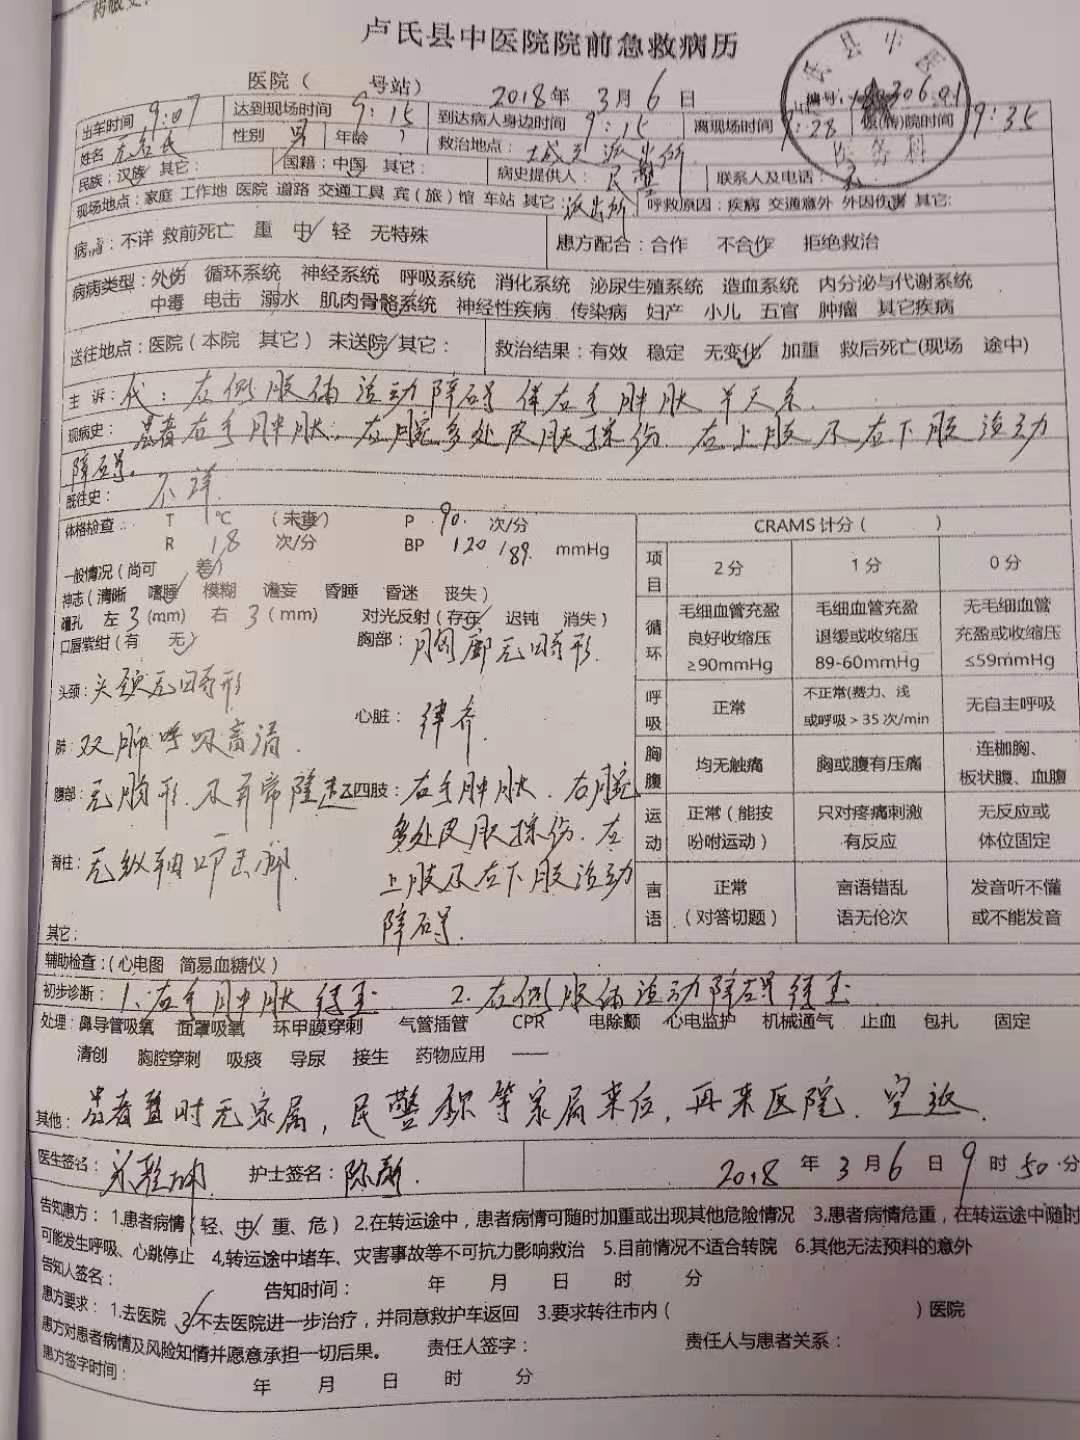 卢氏县中医院院前急救病历
医院（ 号站） 2018年 3月 6日
编号：
出车时间 9:07 达到现场时间 9:15 到达病人身边时间 9:15 离现场时间 9:28 返(转)院时间 9:35
姓名 性别 男 年龄 ? 救治地点： 派出所
民族：汉族 其它： 国籍：中国 其它： 病史提供人：民警 联系人及电话：无
现场地点：家庭 工作地 医院 道路 交通工具 宾（旅）馆 车站 其它：派出所 呼救原因：疾病 交通意外 外因伤害 其它：
病情：不详 救前死亡 重 中 轻 无特殊 患方配合：合作 不合作 拒绝救治
病病类型：外伤 循环系统 神经系统 呼吸系统 消化系统 泌尿生殖系统 造血系统 内分泌与代谢系统
中毒 电击 溺水 肌肉骨骼系统 神经性疾病 传染病 妇产 小儿 五官 肿瘤 其它疾病
送往地点：医院（本院 其它） 未送院 其它： 救治结果：有效 稳定 无变化 加重 救后死亡(现场 途中)
主 诉：代：左侧肢体活动障碍伴右手肿胀半天余.
现病史：患者右手肿胀，右腕多处皮肤擦伤 左上肢及左下肢活动
障碍。
既往史： 不详
体格检查： T ℃ （未查） P 90. 次/分
R 18 次/分 BP 120/89 mmHg
一般情况（尚可 差）
神志（清晰 嗜睡 模糊 谵妄 昏睡 昏迷 丧失）
瞳孔 左3(mm) 右3(mm) 对光反射（存在 迟钝 消失）
口唇紫绀（有 无） 胸部：胸廓无畸形.
头颈：头颈无畸形 心脏：律齐
肺：双肺呼吸音清.
腹部：无胸形及异常隆起 四肢：右手肿胀.右腕
多处皮肤擦伤.左
脊柱：无纵轴叩击痛. 上肢及左下肢活动
障碍.
其它：
CRAMS 计分（ ）
项目 2分 1分 0分
循环 毛细血管充盈良好收缩压≥90mmHg 毛细血管充盈退缓或收缩压89-60mmHg 无毛细血管充盈或收缩压≤59mmHg
呼吸 正常 不正常(费力、浅或呼吸＞35次/min 无自主呼吸
胸腹 均无触痛 胸或腹有压痛 连枷胸、板状腹、血腹
运动 正常（能按吩咐运动） 只对疼痛刺激有反应 无反应或体位固定
言语 正常（对答切题） 言语错乱语无伦次 发音听不懂或不能发音
辅助检查：（心电图 简易血糖仪）
初步诊断：1、右手肿胀待查 2.左侧肢体活动障碍待查
处理：鼻导管吸氧 面罩吸氧 环甲膜穿刺 气管插管 CPR 电除颤 心电监护 机械通气 止血 包扎 固定
清创 胸腔穿刺 吸痰 导尿 接生 药物应用 ——
其他：患者暂时无家属，民警称等家属来后，再来医院.空返.
医生签名： 护士签名： 2018 年 3月6日9时50分
告知患方：1.患者病情（轻、中、重、危）2.在转运途中，患者病情可随时加重或出现其他危险情况 3.患者病情危重，在转运途中随时
可能发生呼吸、心跳停止 4,转运途中堵车、灾害事故等不可抗力影响救治 5.目前情况不适合转院 6.其他无法预料的意外
告知人签名： 告知时间： 年 月 日 时 分
患方要求：1.去医院 2不去医院进一步治疗，并同意救护车返回 3.要求转往市内（ ）医院
患方对患者病情及风险知情并愿意承担一切后果。 责任人签字： 责任人与患者关系：
患方签字时间： 年 月 日 时 分